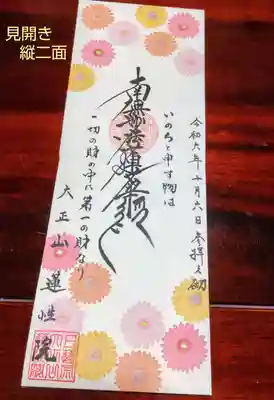 見開き
縦二面
令和六年十月六日 参拝之砌
いのちと申す物は
南無妙法蓮華経
一切の財の中に第一の財なり
大正山 蓮性院